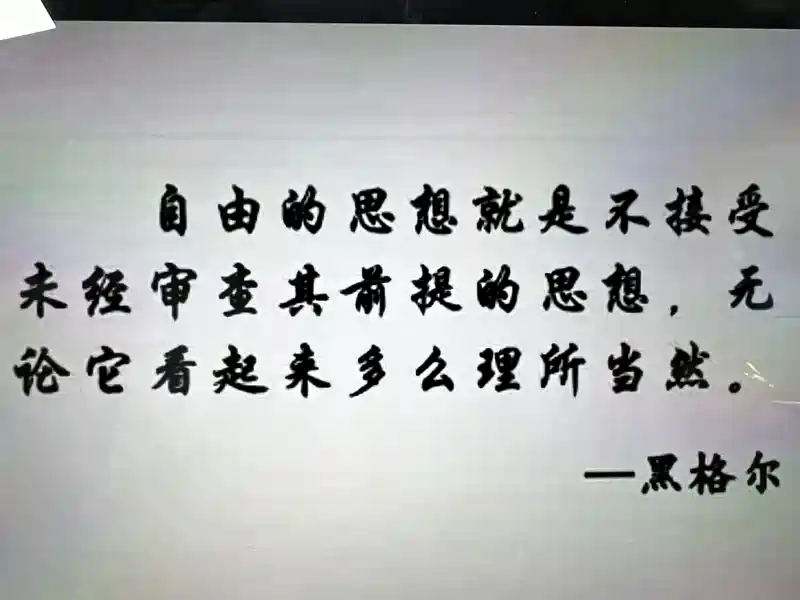 自由的思想就是不接受
未经审查其前提的思想，无
论它看起来多么理所当然。
—黑格尔